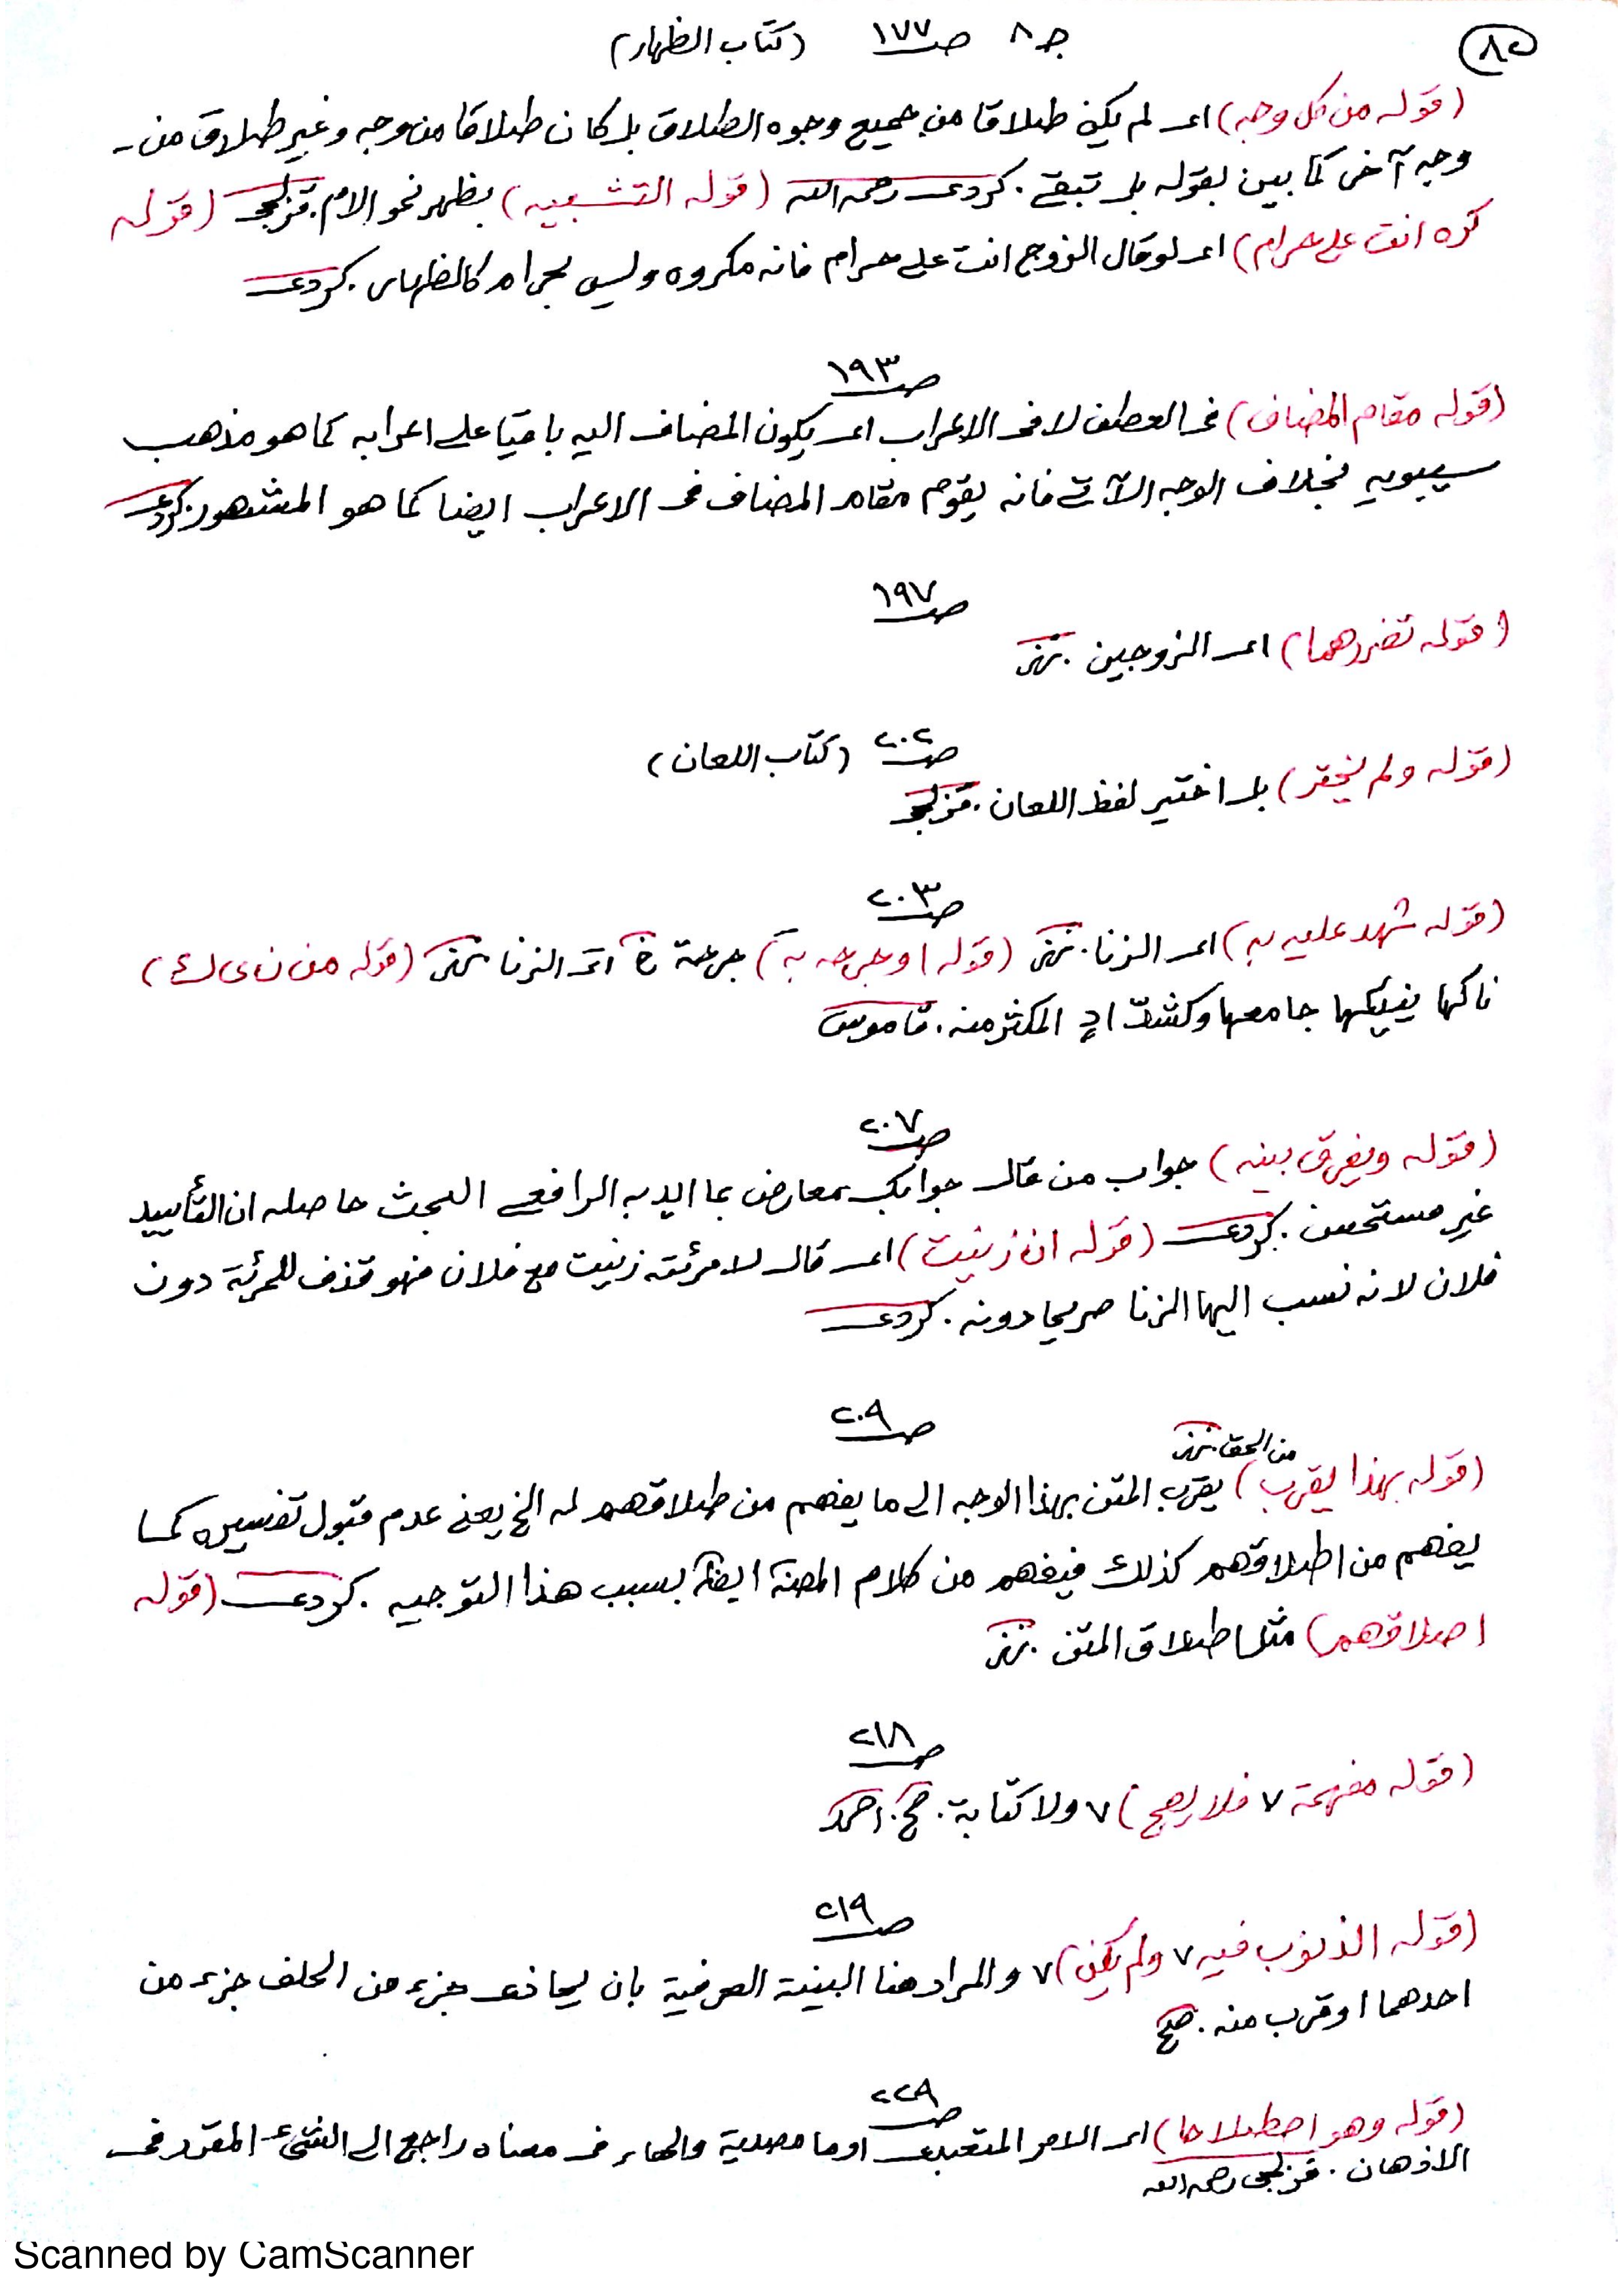 ٨٥
ج ٨ ص ١٧٧ (كتاب الظهار)
(قوله من كل وجه) اى لم يكن طلاقا من جميع وجوه الطلاق بل كان طلاقا من وجه وغير طلاق من
وجه آخر كما بين بقوله بل تبقى. كردى رحمه الله (قوله التشبيه) بظهر نحو الام. قزلجى (قوله
كره انت على حرام) اى لو قال الزوج انت على حرام فانه مكروه وليس بحرام كالظهار. كردى
ص ١٩٣
(قوله مقام المضاف) فى العطف لا فى الاعراب اى يكون المضاف اليه باقيا على اعرابه كما هو مذهب
سيبويه بخلاف الوجه الآتى فانه يقوم مقام المضاف فى الاعراب ايضا كما هو المشهور. كردى
ص ١٩٧
(قوله تضررهما) اى الزوجين.
ص ٢٠٢ (كتاب اللعان)
(قوله ولم يختر) بل اختير لفظ اللعان. قزلجى
ص ٢٠٣
(قوله شهد عليه به) اى الزنا. (قوله او جرحه به) جرحة خ اى الزنا (قوله من ن ى ك)
ناكها ينيكها جامعها وكشدّاد المكثر منه. قاموس
ص ٢٠٧
(قوله ويفرق بينه) جواب من قال جوابك معارض بما ايد به الرافعى البحث حاصله ان التأييد
غير مستحسن. كردى (قوله ان زنيت) اى قال لامرئته زنيت مع فلان فهو قذف للمرئة دون
فلان لانه نسب اليها الزنا صريحا دونه. كردى
ص ٢٠٩
من الحق.
(قوله بهذا يقرب) يقرب المتن بهذا الوجه الى ما يفهم من اطلاقهم له الخ يعنى عدم قبول تفسيره كما
يفهم من اطلاقهم كذلك فيفهم من كلام المصنف ايضا بسبب هذا التوجيه. كردى (قوله
اطلاقهم) مثل اطلاق المتن.
ص ٢١٨
(قوله مفهمة ٧ فلا يصح) ٧ ولا كتابة. صح. احمد
ص ٢١٩
(قوله الذنوب فيه ٧ ولم يكن) ٧ والمراد هنا البينية العرفية بان يحاذى جزء من الحلف جزء من
احدهما او قرب منه. صح
ص ٢٢٩
(قوله وهو اصطلاحا) اى الامر المتعبدى او ما مصدرية والهاء فى معناه راجع الى الشىء المقرر فى
الاذهان. قزلجى رحمه الله
Scanned by CamScanner